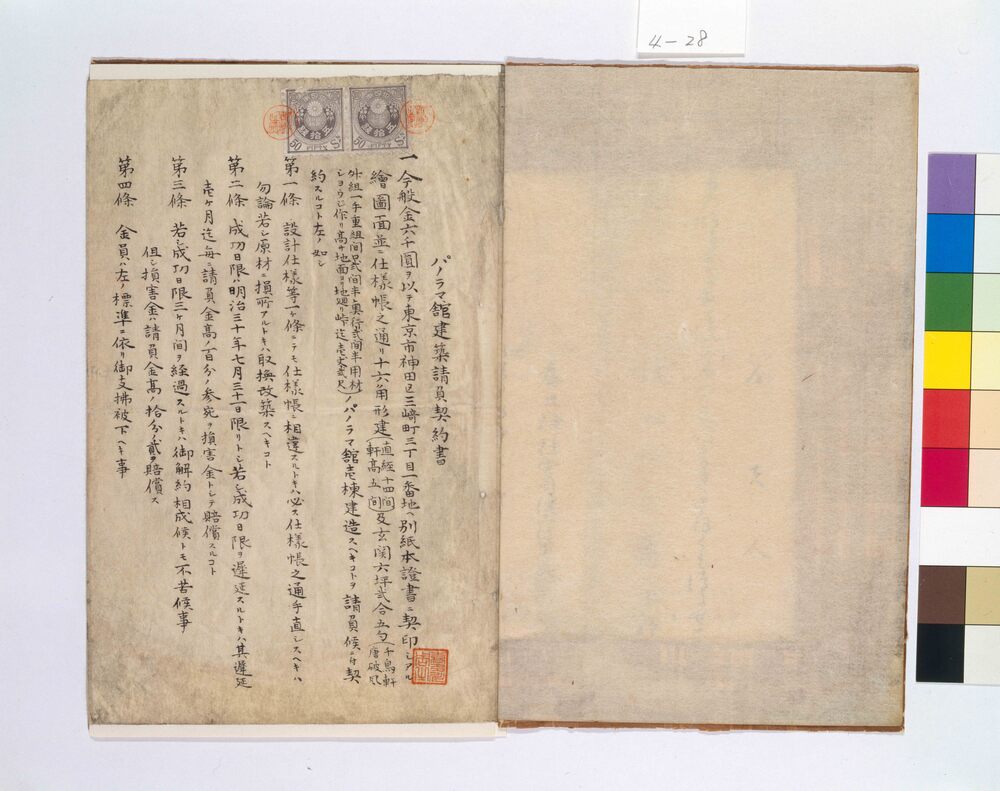 4-28
パノラマ館建築請負契約書
一今般金六千圓ヲ以テ東京市神田区三崎町三丁目一番地ヘ別紙本證書ニ契印シアル
繪圖面並ニ仕様帳之通リ十六角形建(直経十四間 軒高五間)及玄関六坪弐合五勺(千鳥軒 唐破風
外組一手重組間口弐間半奥行弐間半用材
ショウジ作リ高サ地面ヨリ地廻リ峠迄壱丈弐尺)ノパノラマ館壱棟建造スヘキコトヲ請負候ニ付契
約スルコト左ノ如シ
第一條 設計仕様等一ケ條ニテモ仕様帳ニ相違スルトキハ必ス仕様帳之通手直シスヘキハ
勿論若シ原材ニ損所アルトキハ取換改築スヘキコト
第二條 成功日限ハ明治三十年七月三十一日限リトシ若シ成功日限ヲ遅延スルトキハ其遅延
壱ケ月迄毎ニ請負金高ノ百分ノ参宛ヲ損害金トシテ賠償スルコト
第三條 若シ成功日限三ケ月間ヲ経過スルトキハ御解約相成候トモ不苦候事
但シ損害金ハ請負金高ノ拾分ノ貳ヲ賠償ス
第四條 金員ハ左ノ標準ニ依リ御支拂被下ヘキ事
五拾錢
50 FIFTY Sn
五拾錢
50 FIFTY Sn